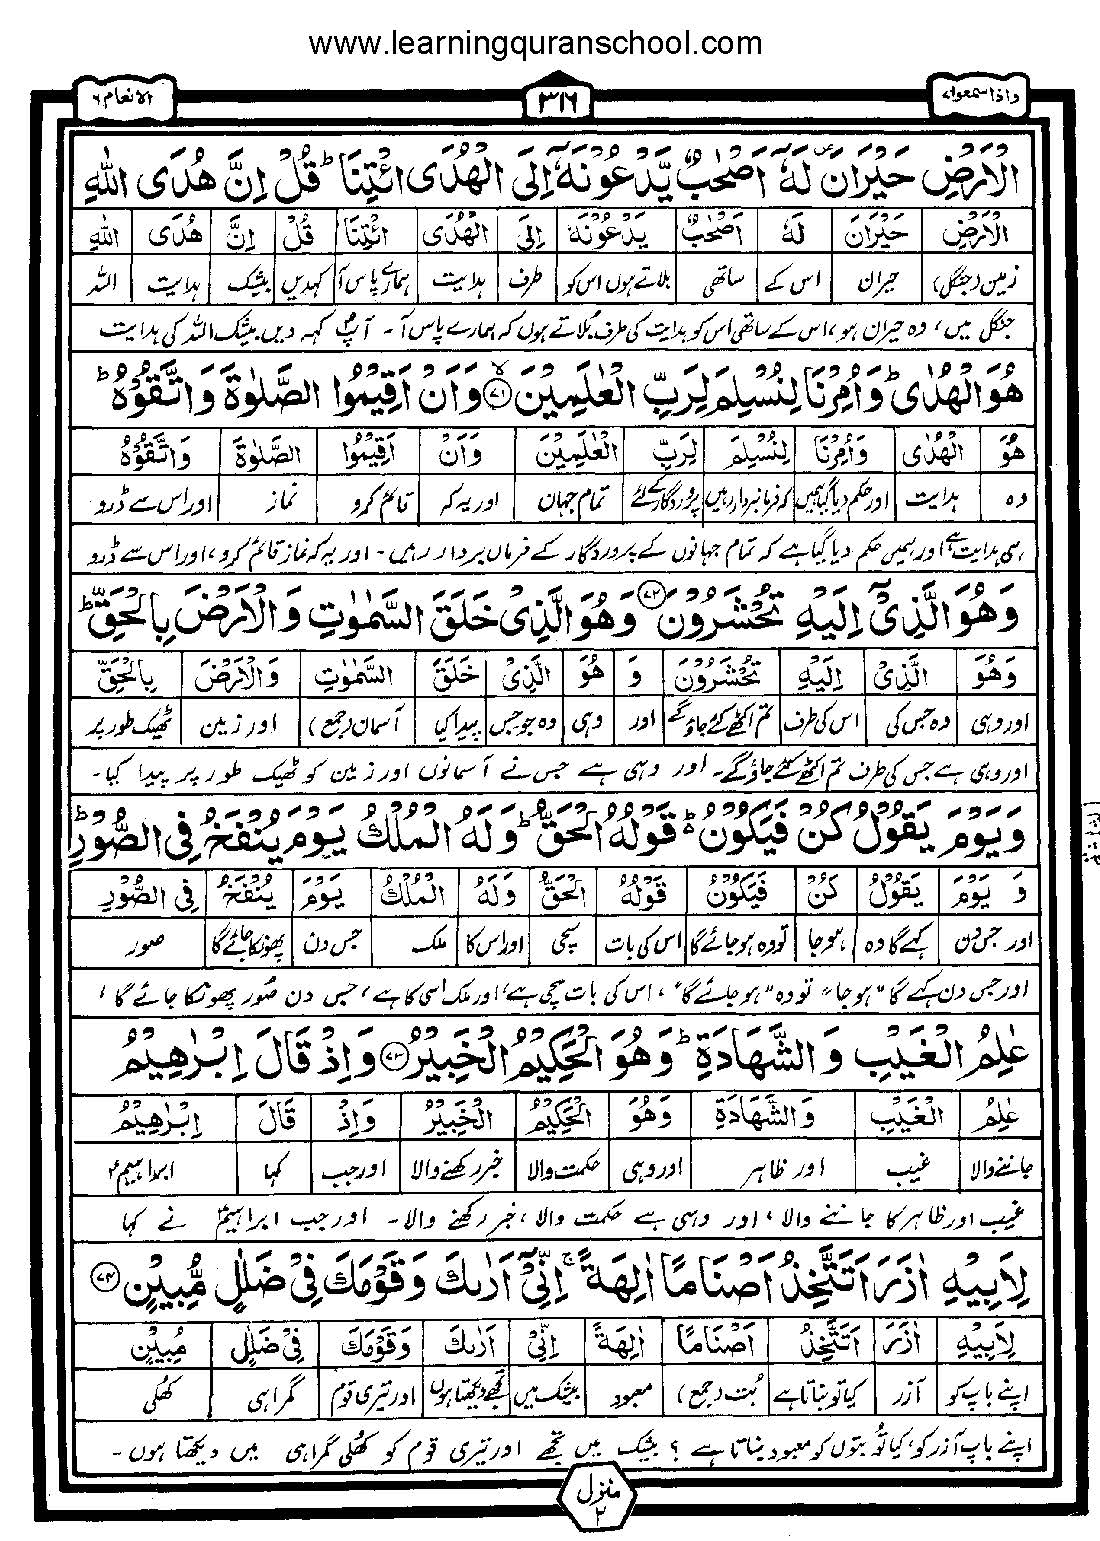 www.learningquranschool.com
واذاسمعوا۷ ۳۱۶ الانعام ۶
الْاَرْضِ حَيْرَانَ ۪ لَهٗۤ اَصْحٰبٌ يَّدْعُوْنَهٗۤ اِلَى الْهُدَى ائْتِنَا ؕ قُلْ اِنَّ هُدَى اللّٰهِ
الْاَرْضِ حَيْرَانَ لَهٗ اَصْحٰبٌ يَدْعُوْنَهٗ اِلَى الْهُدَى ائْتِنَا قُلْ اِنَّ هُدَى اللّٰهِ
زمین (جنگل) حیران اس کے ساتھی بلاتے ہوں اس کو طرف ہدایت ہمارے پاس آ کہدیں بیشک ہدایت اللہ
جنگل میں، وہ حیران ہو، اس کے ساتھی اس کو ہدایت کی طرف بُلاتے ہوں کہ ہمارے پاس آ۔ آپؐ کہہ دیں بیشک اللہ کی ہدایت
هُوَ الْهُدٰى ؕ وَاُمِرْنَا لِنُسْلِمَ لِرَبِّ الْعٰلَمِيْنَ ۙ۷۱ وَاَنْ اَقِيْمُوا الصَّلٰوةَ وَاتَّقُوْهُ ؕ
هُوَ الْهُدٰى وَاُمِرْنَا لِنُسْلِمَ لِرَبِّ الْعٰلَمِيْنَ وَاَنْ اَقِيْمُوا الصَّلٰوةَ وَاتَّقُوْهُ
وہ ہدایت اور حکم دیا گیا ہمیں کہ فرمانبردار رہیں پروردگار کے لئے تمام جہان اور یہ کہ قائم کرو نماز اور اس سے ڈرو
ہی ہدایت ہے اور ہمیں حکم دیا گیا ہے کہ تمام جہانوں کے پروردگار کے فرماں بردار رہیں۔ اور یہ کہ نماز قائم کرو، اور اس سے ڈرو
وَهُوَ الَّذِيْۤ اِلَيْهِ تُحْشَرُوْنَ ۷۲ وَهُوَ الَّذِيْ خَلَقَ السَّمٰوٰتِ وَالْاَرْضَ بِالْحَقِّ ؕ
وَهُوَ الَّذِيْ اِلَيْهِ تُحْشَرُوْنَ وَ هُوَ الَّذِيْ خَلَقَ السَّمٰوٰتِ وَالْاَرْضَ بِالْحَقِّ
اور وہی وہ جس کی اس کی طرف تم اکٹھے کئے جاؤ گے اور وہی وہ جو جس پیدا کیا آسمان (جمع) اور زمین ٹھیک طور پر
اور وہی ہے جس کی طرف تم اکٹھے کئے جاؤ گے۔ اور وہی ہے جس نے آسمانوں اور زمین کو ٹھیک طور پر پیدا کیا۔
وَيَوْمَ يَقُوْلُ كُنْ فَيَكُوْنُ ؕ قَوْلُهُ الْحَقُّ ؕ وَلَهُ الْمُلْكُ يَوْمَ يُنْفَخُ فِى الصُّوْرِ ؕ
وَ يَوْمَ يَقُوْلُ كُنْ فَيَكُوْنُ قَوْلُهُ الْحَقُّ وَلَهُ الْمُلْكُ يَوْمَ يُنْفَخُ فِى الصُّوْرِ
اور جس دن کہے گا وہ ہو جا تو وہ ہو جائے گا اس کی بات سچی اور اس کا ملک جس دن پھونکا جائے گا صور
اور جس دن کہے گا "ہو جا" تو وہ "ہو جائے گا"، اس کی بات سچی ہے، اور ملک اسی کا ہے، جس دن صُور پھونکا جائے گا،
عٰلِمُ الْغَيْبِ وَالشَّهَادَةِ ؕ وَهُوَ الْحَكِيْمُ الْخَبِيْرُ ۷۳ وَاِذْ قَالَ اِبْرٰهِيْمُ
عٰلِمُ الْغَيْبِ وَالشَّهَادَةِ وَهُوَ الْحَكِيْمُ الْخَبِيْرُ وَاِذْ قَالَ اِبْرٰهِيْمُ
جاننے والا غیب اور ظاہر اور وہی حکمت والا خبر رکھنے والا اور جب کہا ابراہیمؑ
غیب اور ظاہر کا جاننے والا، اور وہی ہے حکمت والا، خبر رکھنے والا۔ اور جب ابراہیمؑ نے کہا
لِاَبِيْهِ اٰزَرَ اَتَتَّخِذُ اَصْنَامًا اٰلِهَةً ۚ اِنِّيْۤ اَرٰىكَ وَقَوْمَكَ فِيْ ضَلٰلٍ مُّبِيْنٍ ۷۴
لِاَبِيْهِ اٰزَرَ اَتَتَّخِذُ اَصْنَامًا اٰلِهَةً اِنِّيْ اَرٰىكَ وَقَوْمَكَ فِيْ ضَلٰلٍ مُبِيْنٍ
اپنے باپ کو آزر کیا تو بناتا ہے بُت (جمع) معبود بیشک میں تجھے دیکھتا ہوں اور تیری قوم گمراہی کھلی
اپنے باپ آزر کو، کیا تُو بتوں کو معبود بناتا ہے؟ بیشک میں تجھے اور تیری قوم کو کھلی گمراہی میں دیکھتا ہوں۔
منزل ۲